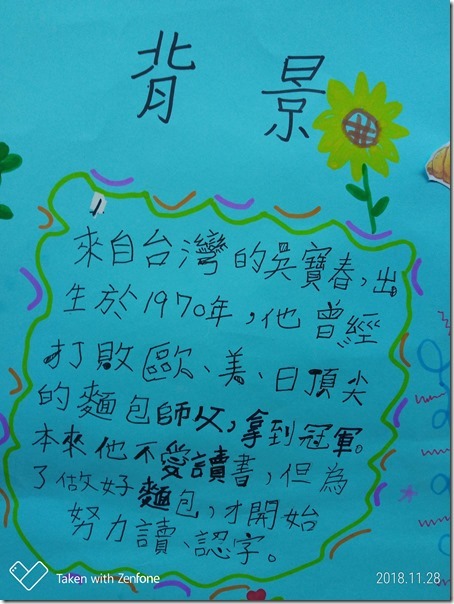 背景
來自台灣的吳寶春，出
生於1970年，他曾經
打敗歐、美、日頂尖
的麵包師父，拿到冠軍。
本來他不愛讀書，但為
了做好麵包，才開始
努力讀、認字。
Taken with Zenfone
2018.11.28